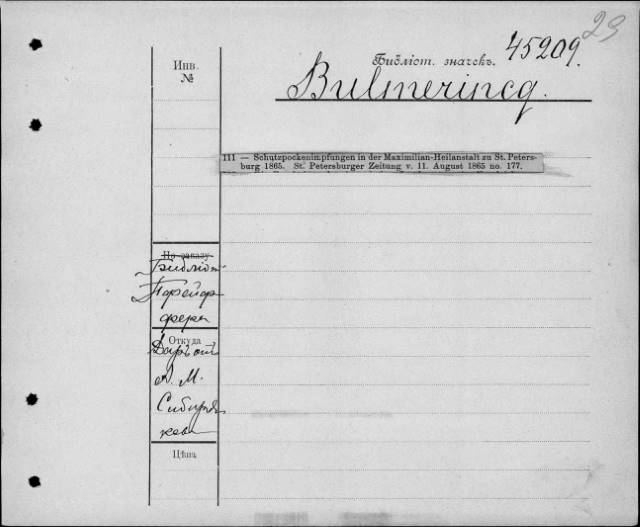 23
Инв.
№
Библіот. значекъ. 45209.
Bulmerincq.
111 — Schutzpockenimpfungen in der Maximilian-Heilanstalt zu St. Peters-
burg 1865. St. Petersburger Zeitung v. 11. August 1865 no. 177.
На заказу
Библіот.
Откуда
Даръ от
А. М.
Сибиря
кова
Цѣна